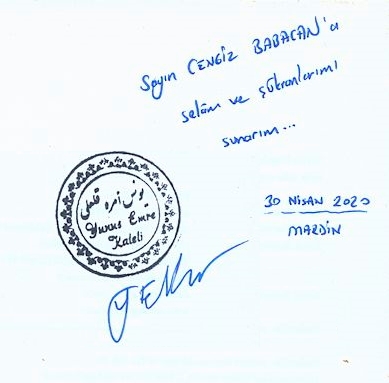 Sayın CENGİZ BABACAN'a
selâm ve şükranlarımı
sunarım...
30 NİSAN 2020
MARDİN
يونس أمره قلعلى
Yunus Emre
Kaleli